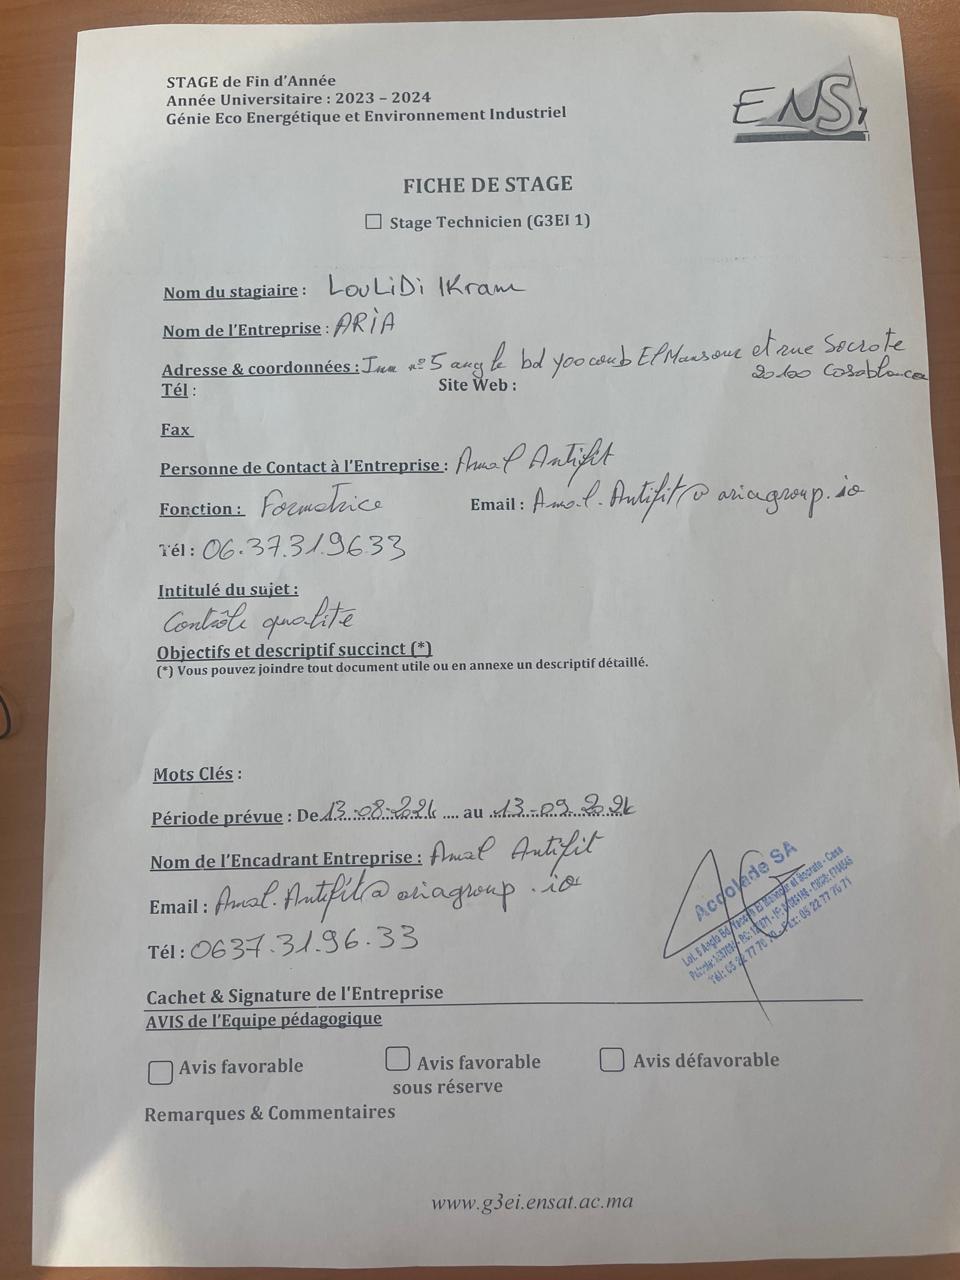 STAGE de Fin d'Année
Année Universitaire : 2023 – 2024
Génie Eco Energétique et Environnement Industriel
ENS
FICHE DE STAGE
Stage Technicien (G3EI 1)
Nom du stagiaire : LOULIDI IKram
Nom de l'Entreprise : ARIA
Adresse & coordonnées : Imm n° 5 angle bd yacoub El Mansour et rue Socrate
20100 Casablanca
Tél : Site Web :
Fax
Personne de Contact à l'Entreprise : Amal Antifit
Fonction : Formatrice Email : Amal.Antifit@ariagroup.io
Tél : 06.37.31.96.33
Intitulé du sujet :
Contrôle qualité
Objectifs et descriptif succinct (*)
(*) Vous pouvez joindre tout document utile ou en annexe un descriptif détaillé.
Mots Clés :
Période prévue : De 13-08-2024 .... au 13-09-2024
Nom de l'Encadrant Entreprise : Amal Antifit
Email : Amal.Antifit@ariagroup.io
Tél : 0637.31.96.33
Accolade SA
Tél: 05 22 77 76 70 - Fax: 05 22 77 76 71
Cachet & Signature de l'Entreprise
AVIS de l'Equipe pédagogique
Avis favorable Avis favorable Avis défavorable
sous réserve
Remarques & Commentaires
www.g3ei.ensat.ac.ma